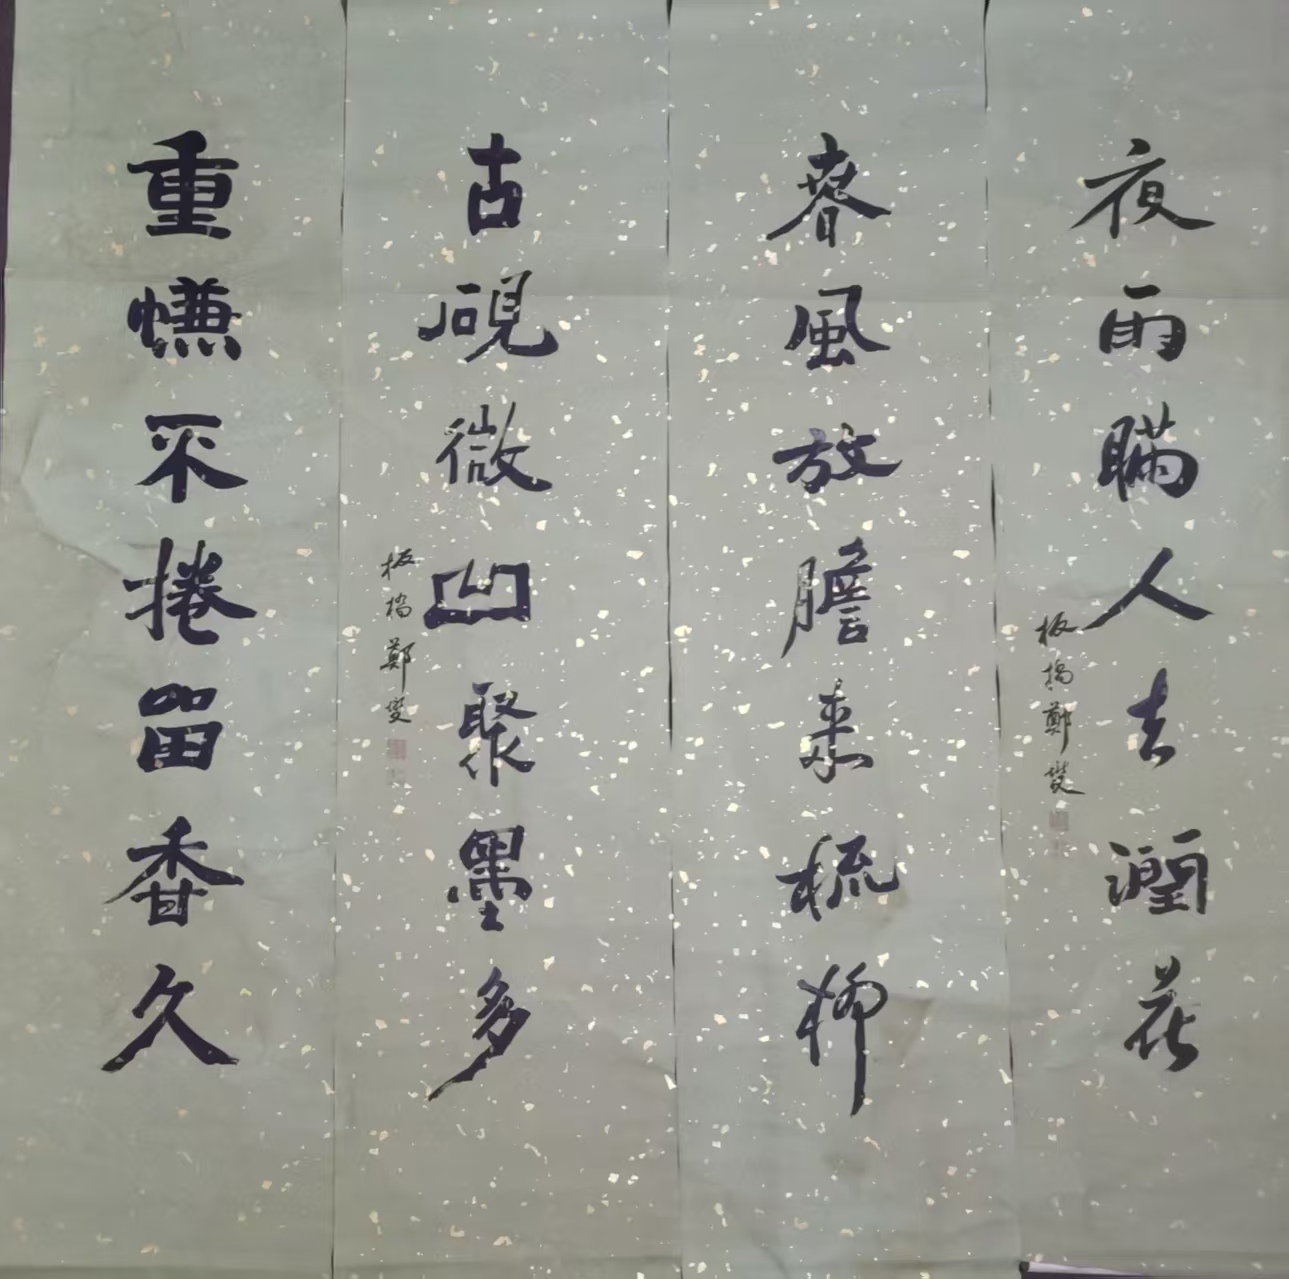 夜雨瞞人去潤花
板橋鄭燮
春風放膽来梳柳
古硯微凹聚墨多
板橋鄭燮
重㡘不捲留香久